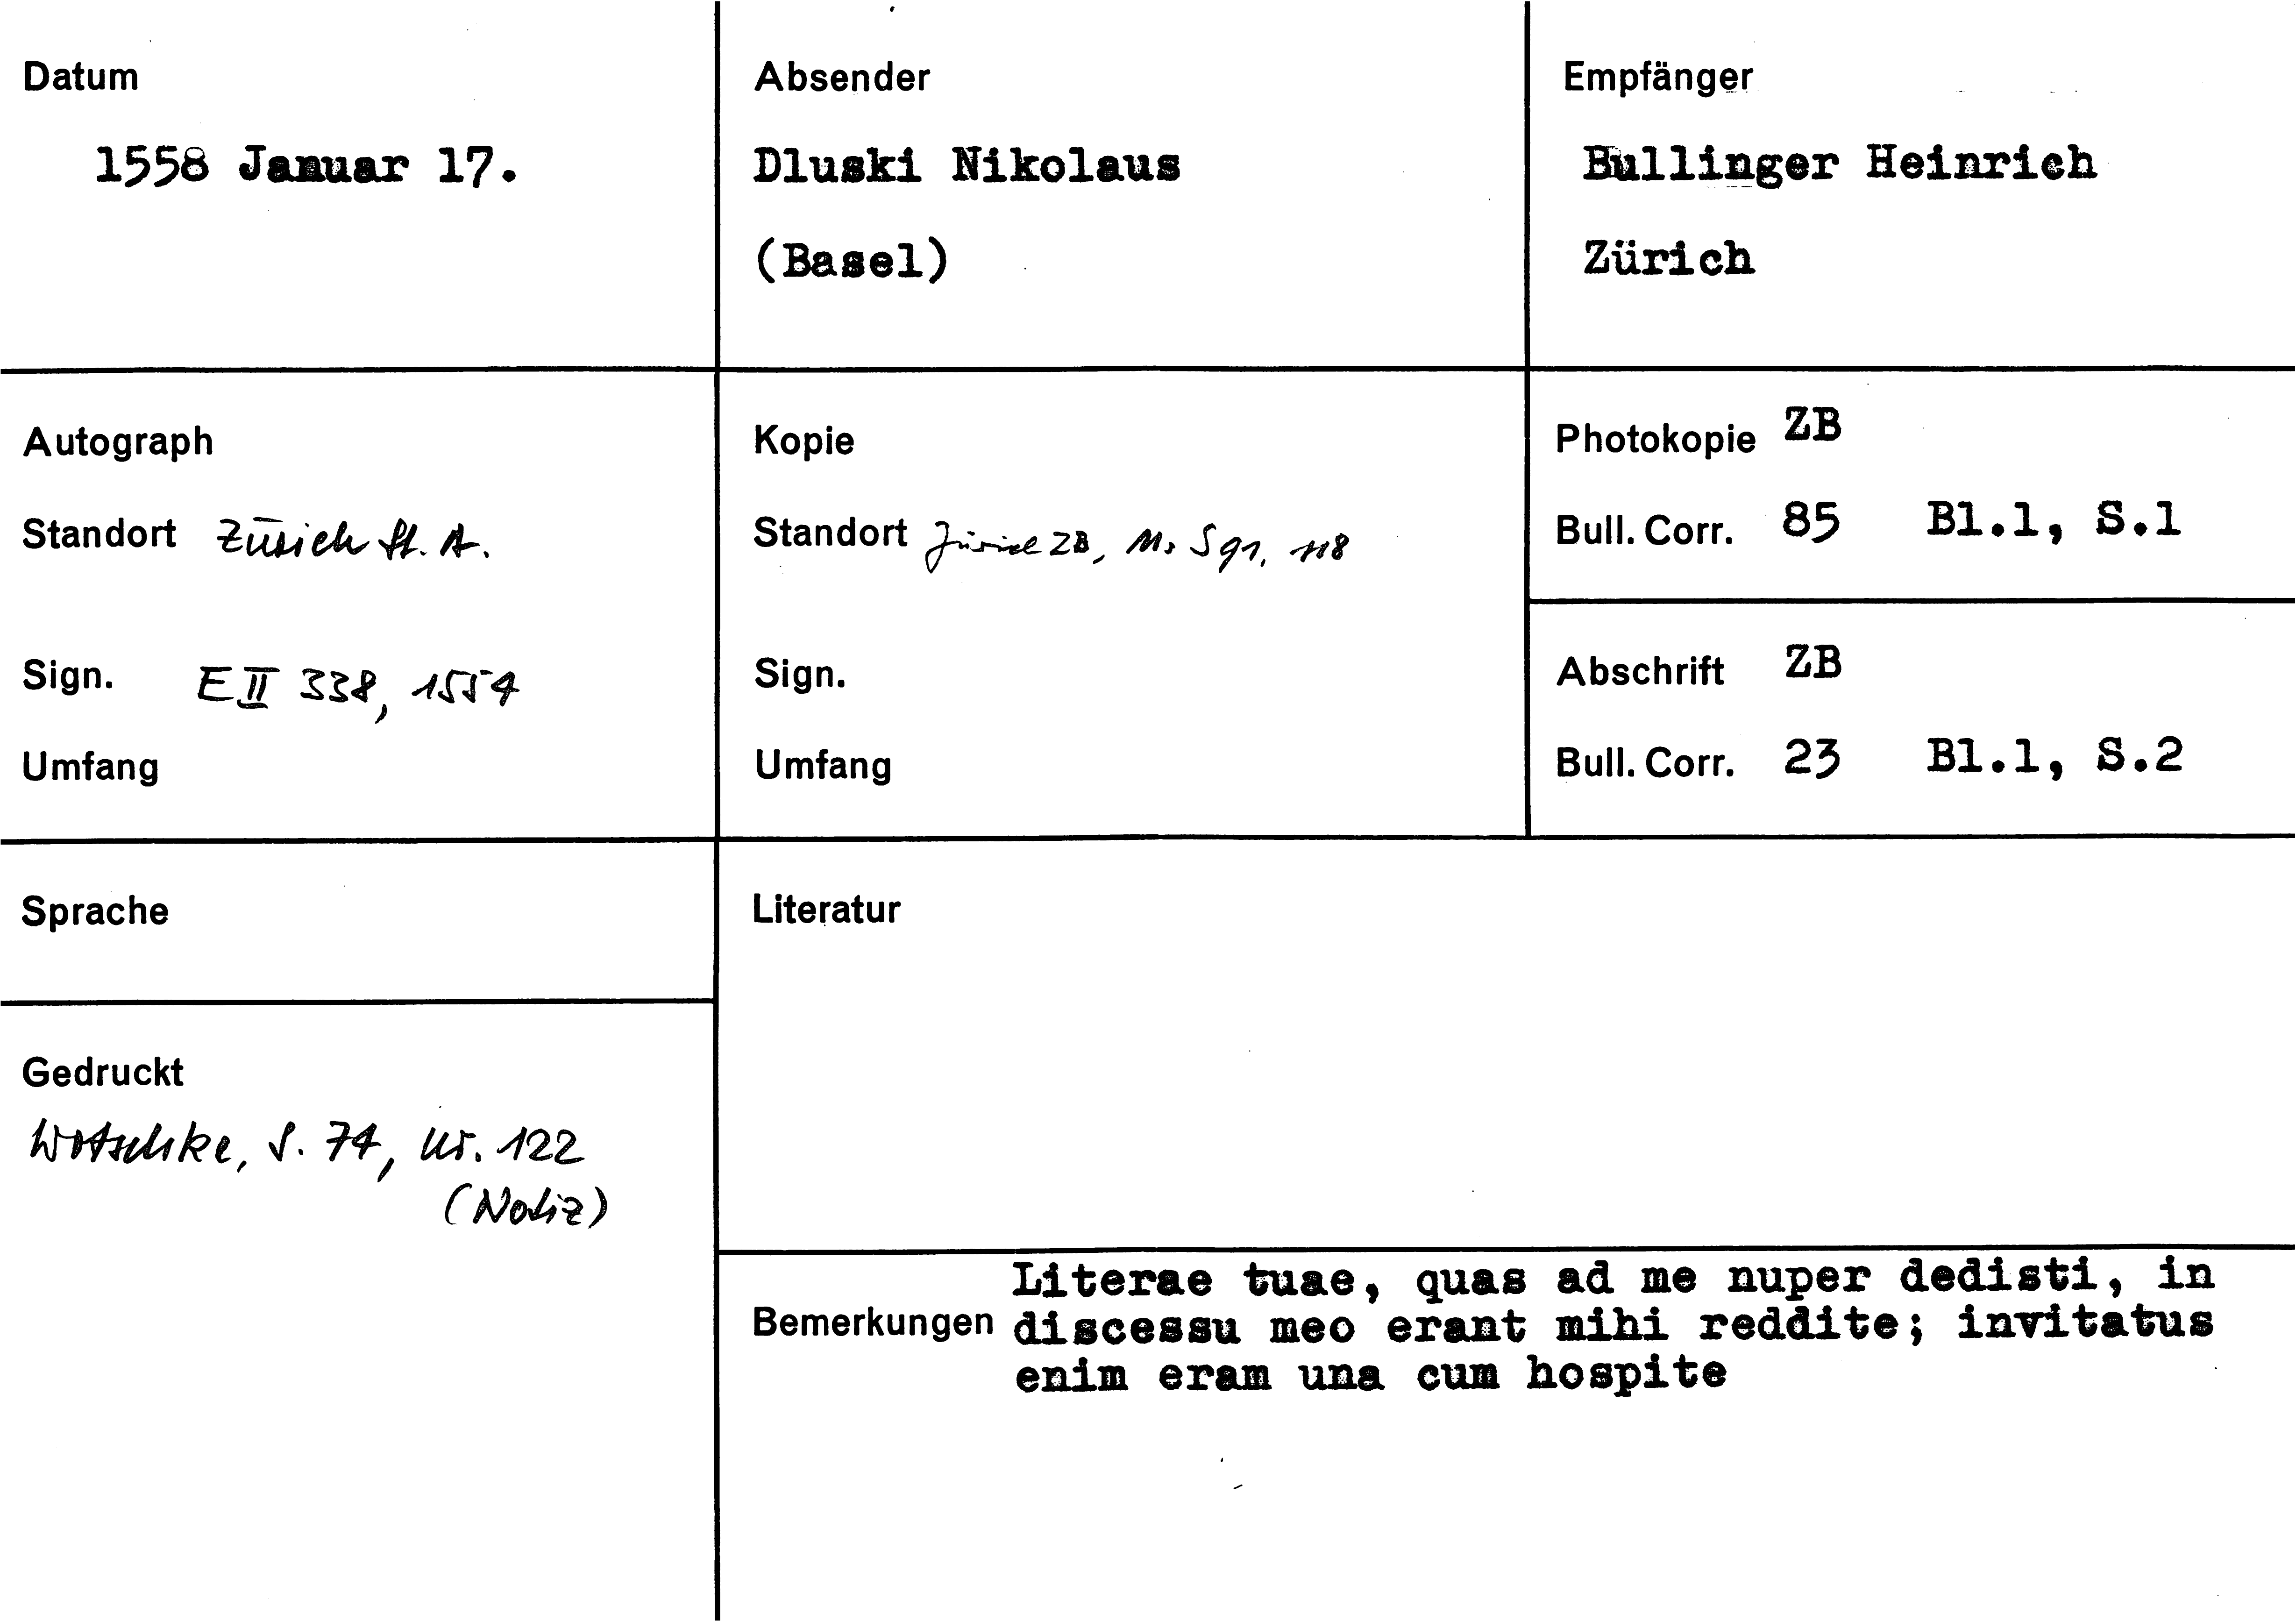 Datum
1558 Januar 17.
Absender
Dluski Nikolaus
(Basel)
Empfänger
Bullinger Heinrich
Zürich
Autograph
Standort Zürich St. A.
Sign. E II 338, 1554
Umfang
Kopie
Standort Zürich ZB, Ms S 91, 118
Sign.
Umfang
Photokopie ZB
Bull. Corr. 85 Bl.1, S.1
Abschrift ZB
Bull. Corr. 23 Bl.1, S.2
Sprache
Gedruckt
Wotschke, S. 74, Nr. 122
(Notiz)
Literatur
Bemerkungen
Literae tuae, quas ad me nuper dedisti, in
discessu meo erant mihi reddite; invitatus
enim eram una cum hospite